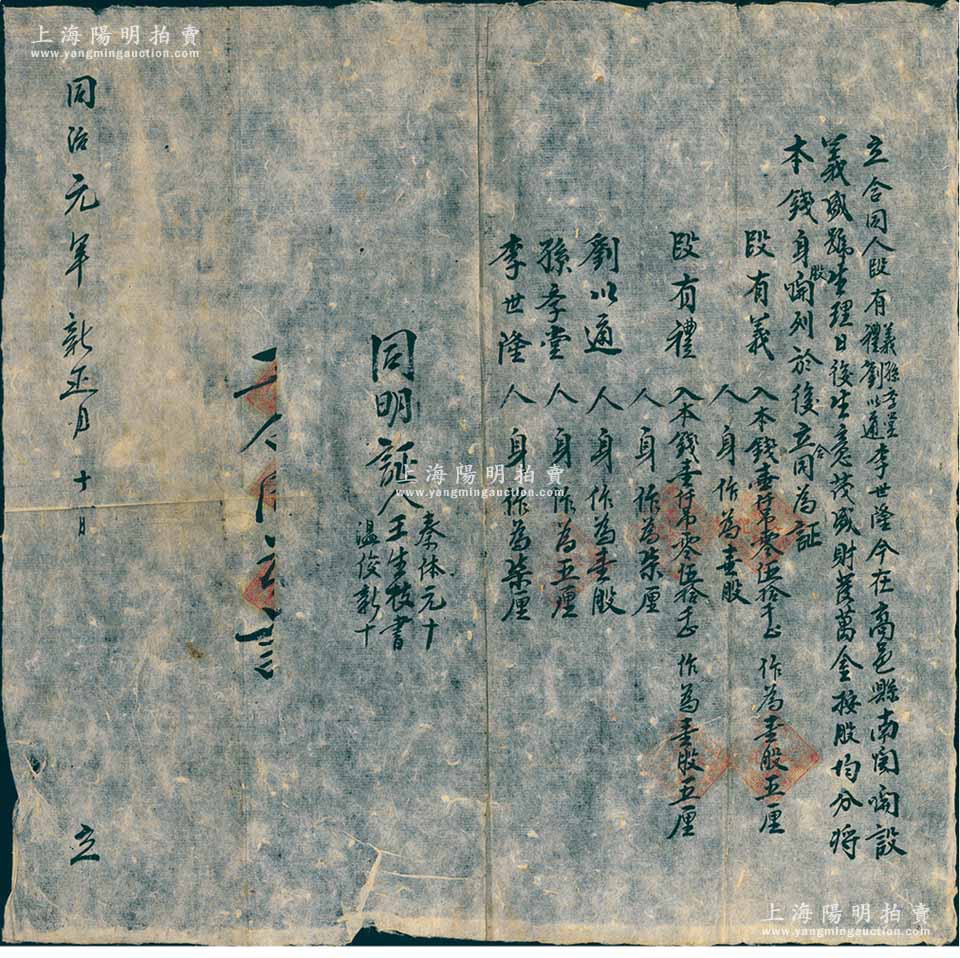 立合同人段有義禮孫孝堂劉以通李世隆今在高邑縣南関開設
義盛號生理日後生意茂盛財發萬金按股均分將
本錢身股開列於後立合同為証
段有義 入本錢壹仟吊零伍拾千正 作為壹股五厘
人身作為壹股
段有禮 入本錢壹仟吊零伍拾千正 作為壹股五厘
人身作為柒厘
劉以通 人身作為壹股
孫孝堂 人身作為五厘
李世隆 人身作為柒厘
同明証人
秦体元十
王生枝書
溫俊新十
同治元年新正月十日 立
上海陽明拍賣
www.yangmingauction.com
上海陽明拍賣
www.yangmingauction.com
上海陽明拍賣
www.yangmingauction.com